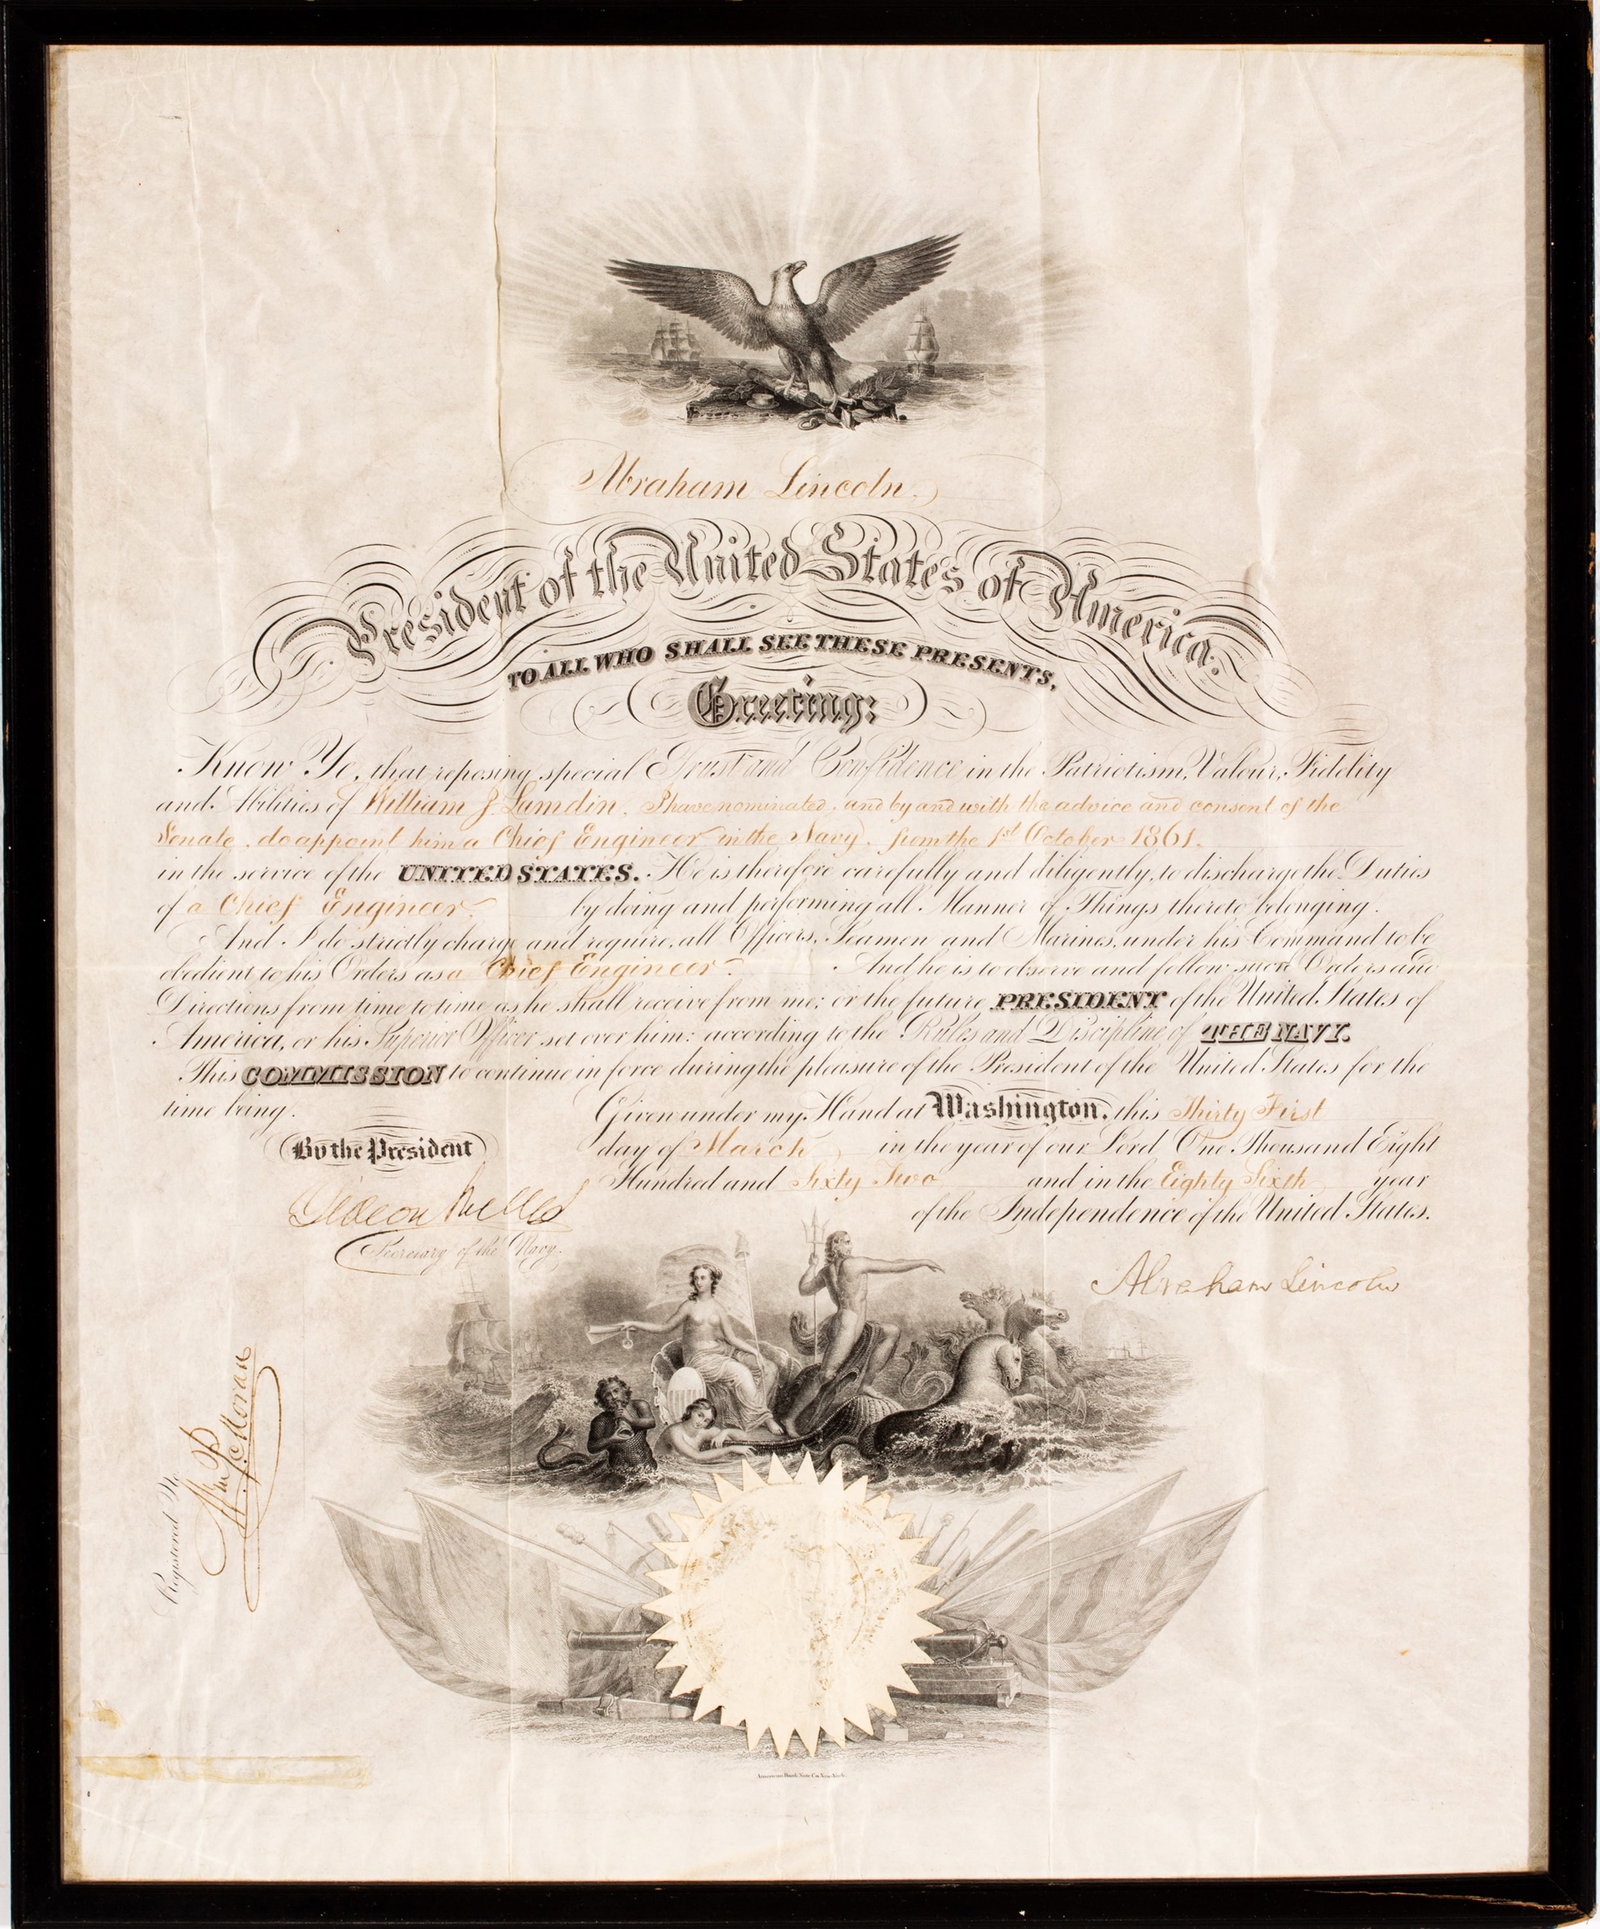 Abraham Lincoln.
President of the United States of America.
TO ALL WHO SHALL SEE THESE PRESENTS,
Greeting:
Know Ye, that reposing special Trust and Confidence in the Patriotism, Valour, Fidelity
and Abilities of William J. Lamdin, I have nominated, and by and with the advice and consent of the
Senate, do appoint him a Chief Engineer in the Navy, from the 1st October 1861.
in the service of the UNITED STATES. He is therefore carefully and diligently, to discharge the Duties
of a Chief Engineer, by doing and performing all Manner of Things thereto belonging.
And I do strictly charge and require, all Officers, Seamen and Marines, under his Command to be
obedient to his Orders as a Chief Engineer. And he is to observe and follow such Orders and
Directions from time to time as he shall receive from me; or the future PRESIDENT of the United States of
America, or his Superior Officer set over him: according to the Rules and Discipline of THE NAVY.
This COMMISSION to continue in force during the pleasure of the President of the United States for the
time being.
Given under my Hand at Washington, this Thirty First
By the President
day of March, in the year of our Lord, One Thousand Eight
Hundred and Sixty Two and in the Eighty Sixth year
Gideon Welles
of the Independence of the United States.
Secretary of the Navy.
Abraham Lincoln
Registered No.
Wm P. Moran
American Bank Note Co. New-York.